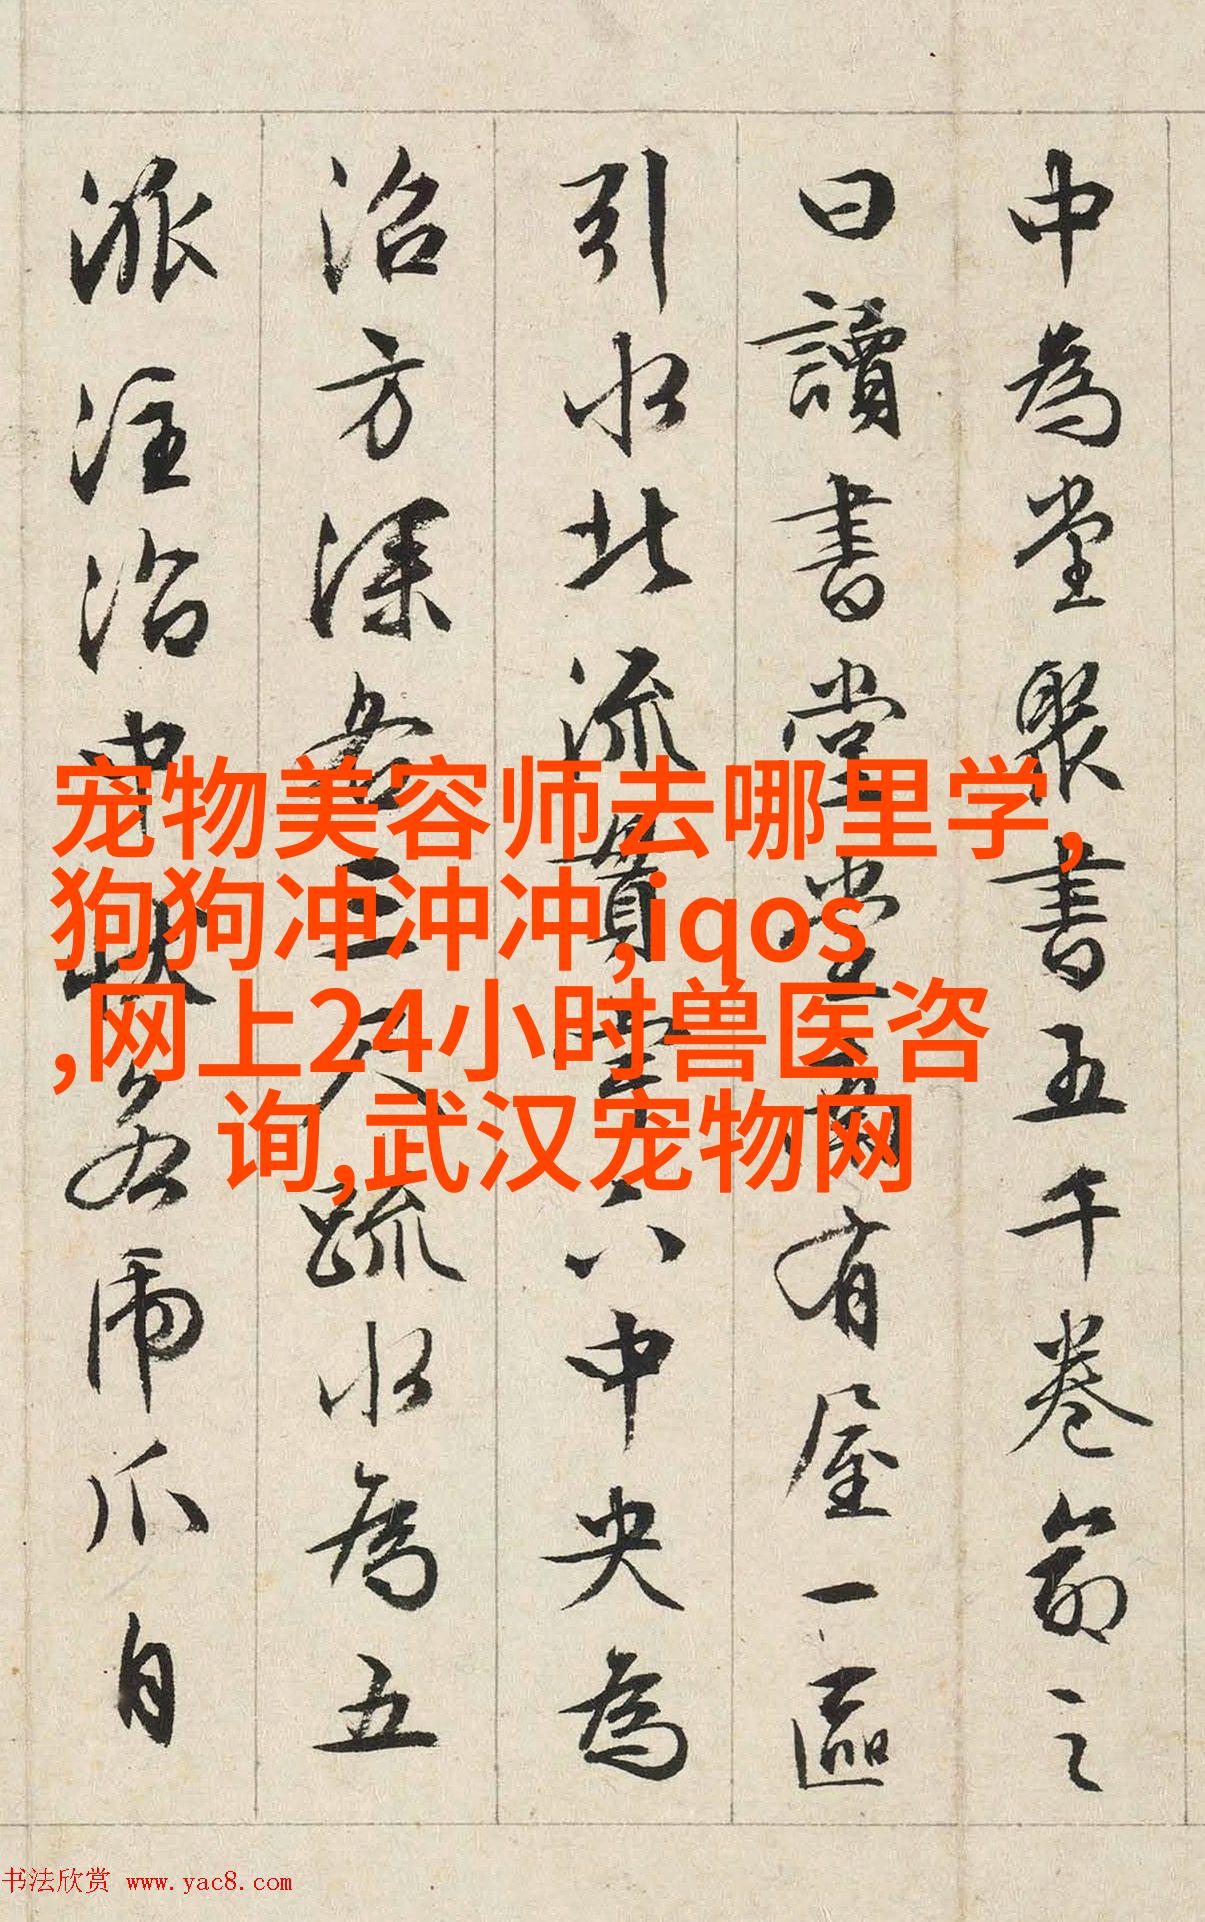 中為堂聚書五千卷命之
曰讀書堂堂南有屋一區
引水北流貫宇下中央為
沼方深各三尺疏水為五
派注沼中狀若虎爪自
宠物美容师去哪里学,
狗狗冲冲冲,iqos
,网上24小时兽医咨
询,武汉宠物网
书法欣赏 www.yac8.com